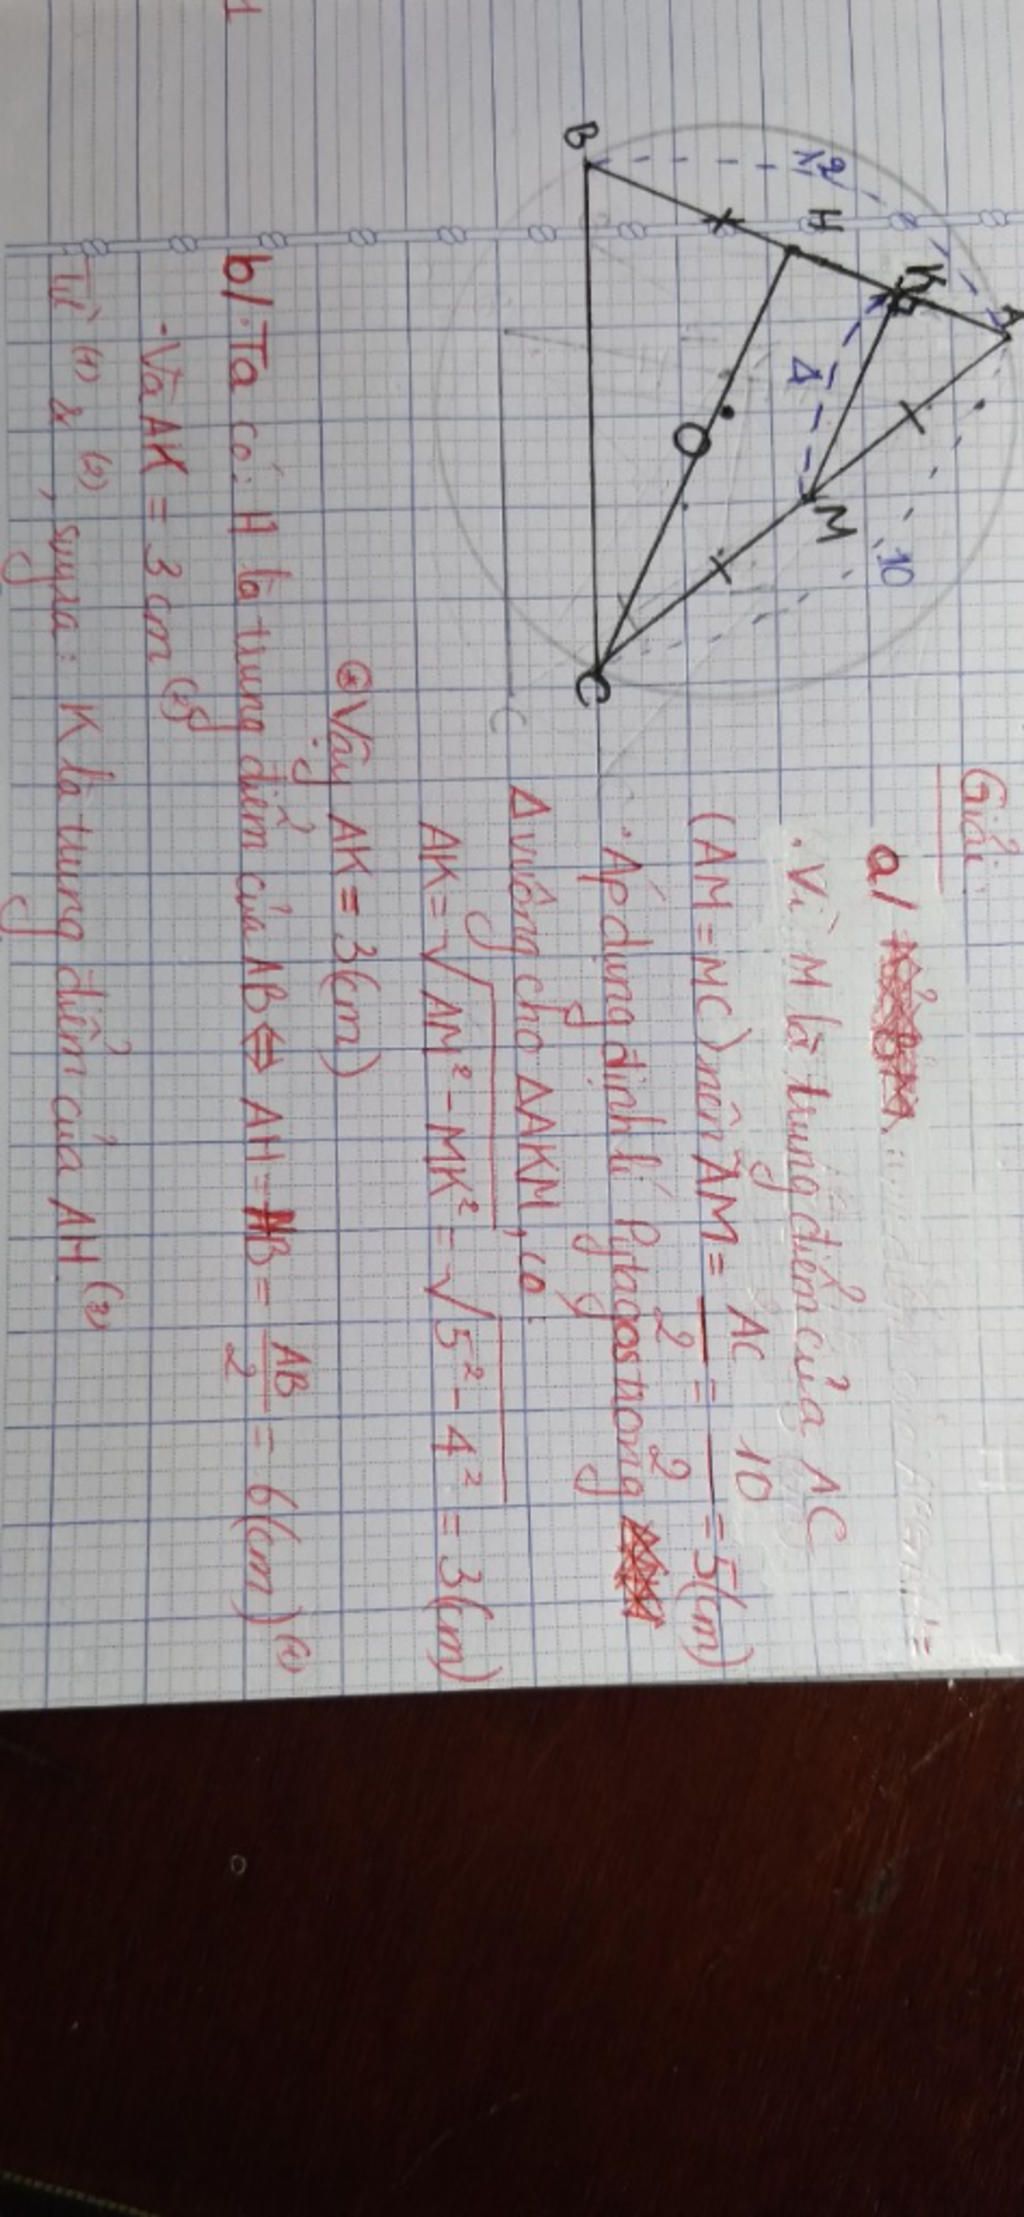 Giải:
a/
. Vì M là trung điểm của AC
(AM = MC) nên AM = AC/2 = 10/2 = 5(cm)
. Áp dụng định lí Pytagos trong
Δ vuông cho ΔAKM, có:
AK = √AM² - MK² = √5² - 4² = 3(cm)
⊛ Vậy AK = 3(cm)
b/ Ta có: H là trung điểm của AB ⇔ AH = HB = AB/2 = 6(cm) (1)
- Và AK = 3 cm (2)
Từ (1) & (2), suy ra: K là trung điểm của AH (3)
A
K
H
B
12
4
10
M
O
C
C